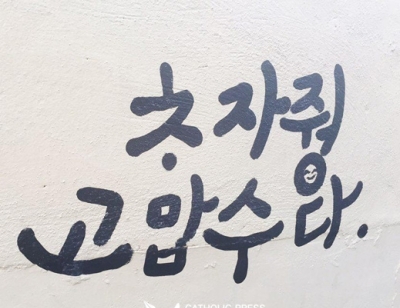 ᄎᆞ자줭
고맙수다.
CATHOLIC PRESS